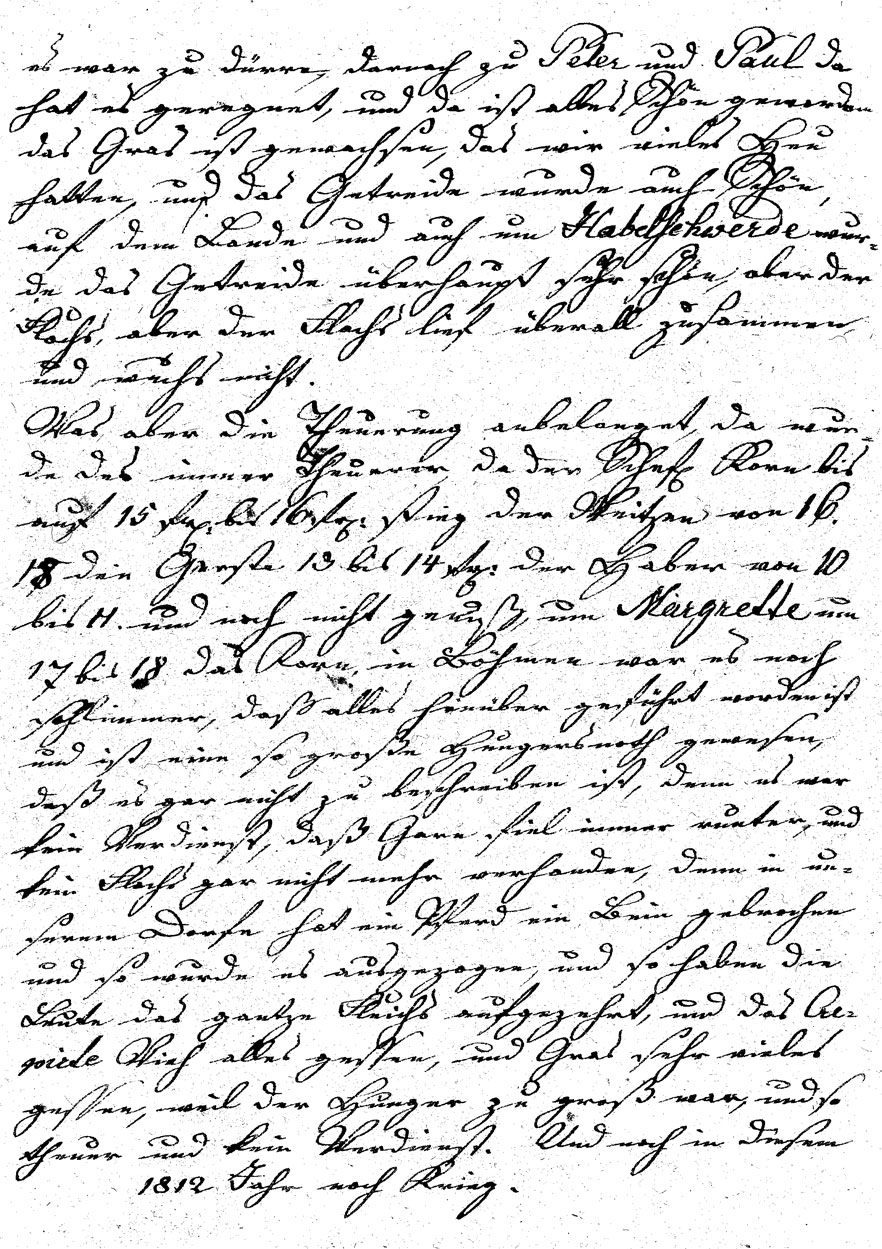 es war zu dürre, darnach zu Peter und Paul da
hat es geregnet, und da ist alles Schön geworden
das Gras ist gewachsen, das wir vieles Heu
hatten, und das Getreide wurde auch Schön,
auf dem Lande und auch um Habelschwerde wur-
de das Getreide überhaupt sehr schön, aber der
Flachs, aber der Flachs lief überall zusammen
und wuchs nicht.
Was aber die Theuerung anbelanget, da wur-
de des immer Theuerer, da der Schefl Korn bis
auf 15 bis 16 stieg der Weitzen von 16.
18 die Gerste 13 bis 14 der Haber von 10
bis 11. und noch nicht genug, um Margrette um
17 bis 18 das Korn, in Böhmen war es noch
schlimmer, daß alles hinüber geführt worden ist
und ist eine so große Hungersnoth gewesen,
daß es gar nicht zu beschreiben ist, denn es war
kein Verdienst, daß Garn fiel immer runter, und
kein Flachs gar nicht mehr verhanden, denn in un-
serem Dorfe hat ein Pferd ein Bein gebrochen
und so wurde es ausgezogen, und so haben die
Leute das gantze Fleichs aufgezehrt, und das Cre-
pirte Vieh alles gessen, und Gras sehr vieles
gessen, weil der Hunger zu groß war, und so
theuer und kein Verdienst. Und noch in diesem
1812 Jahr noch Krieg.